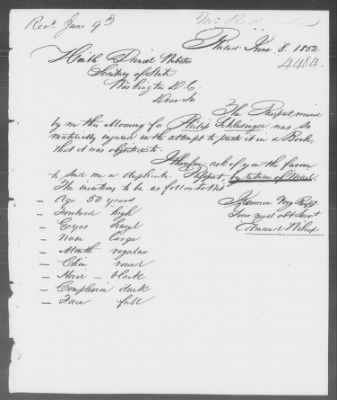 Rec'd June 9th
Philad June 8. 1852
4484
Honble Daniel Webster
Secretary of State
Washington D.C.
Dear Sir
The Passport received
by me this Morning for Philip Schlesinger was so
materially injured in the attempt to paste it in a Book,
that it was
I therefore ask of you the favour
to send me a duplicate Passport, by return of Mail.
The inventory to be as follows
— Age 50 years
— Forehead high
— Eyes hazel
— Nose large
— Mouth regular
— Chin round
— Hair – black
— Complexion dark
— Face full
I remain Very Resp
Your most obt Servt
Edward